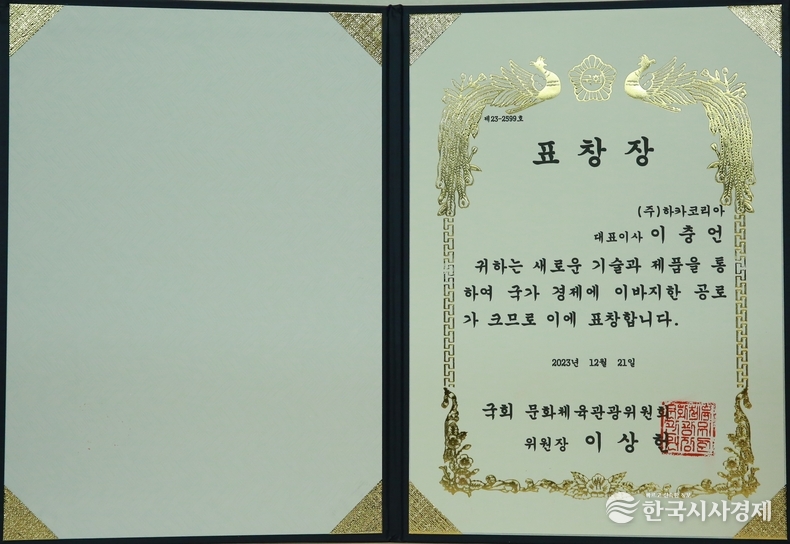 제23-2599호
표 창 장
(주)하카코리아
대표이사 이 충 언
귀하는 새로운 기술과 제품을 통
하여 국가 경제에 이바지한 공로
가 크므로 이에 표창합니다.
2023년 12월 21일
국회 문화체육관광위원회
위원장 이 상 헌
한국시사경제